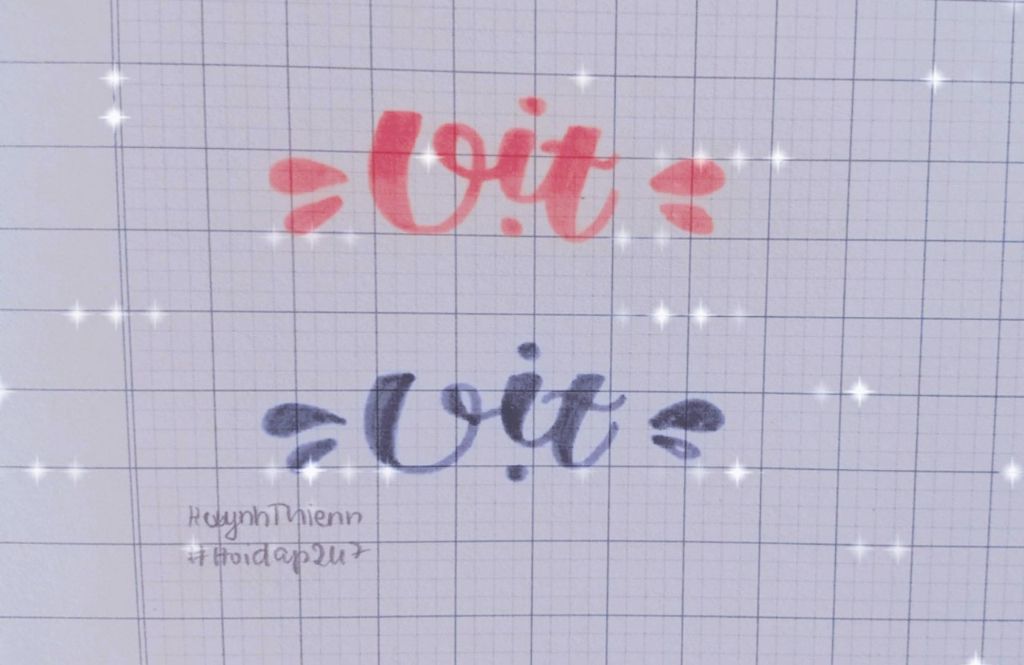 vịt
vịt
HuynhThienn
#Hoidap247